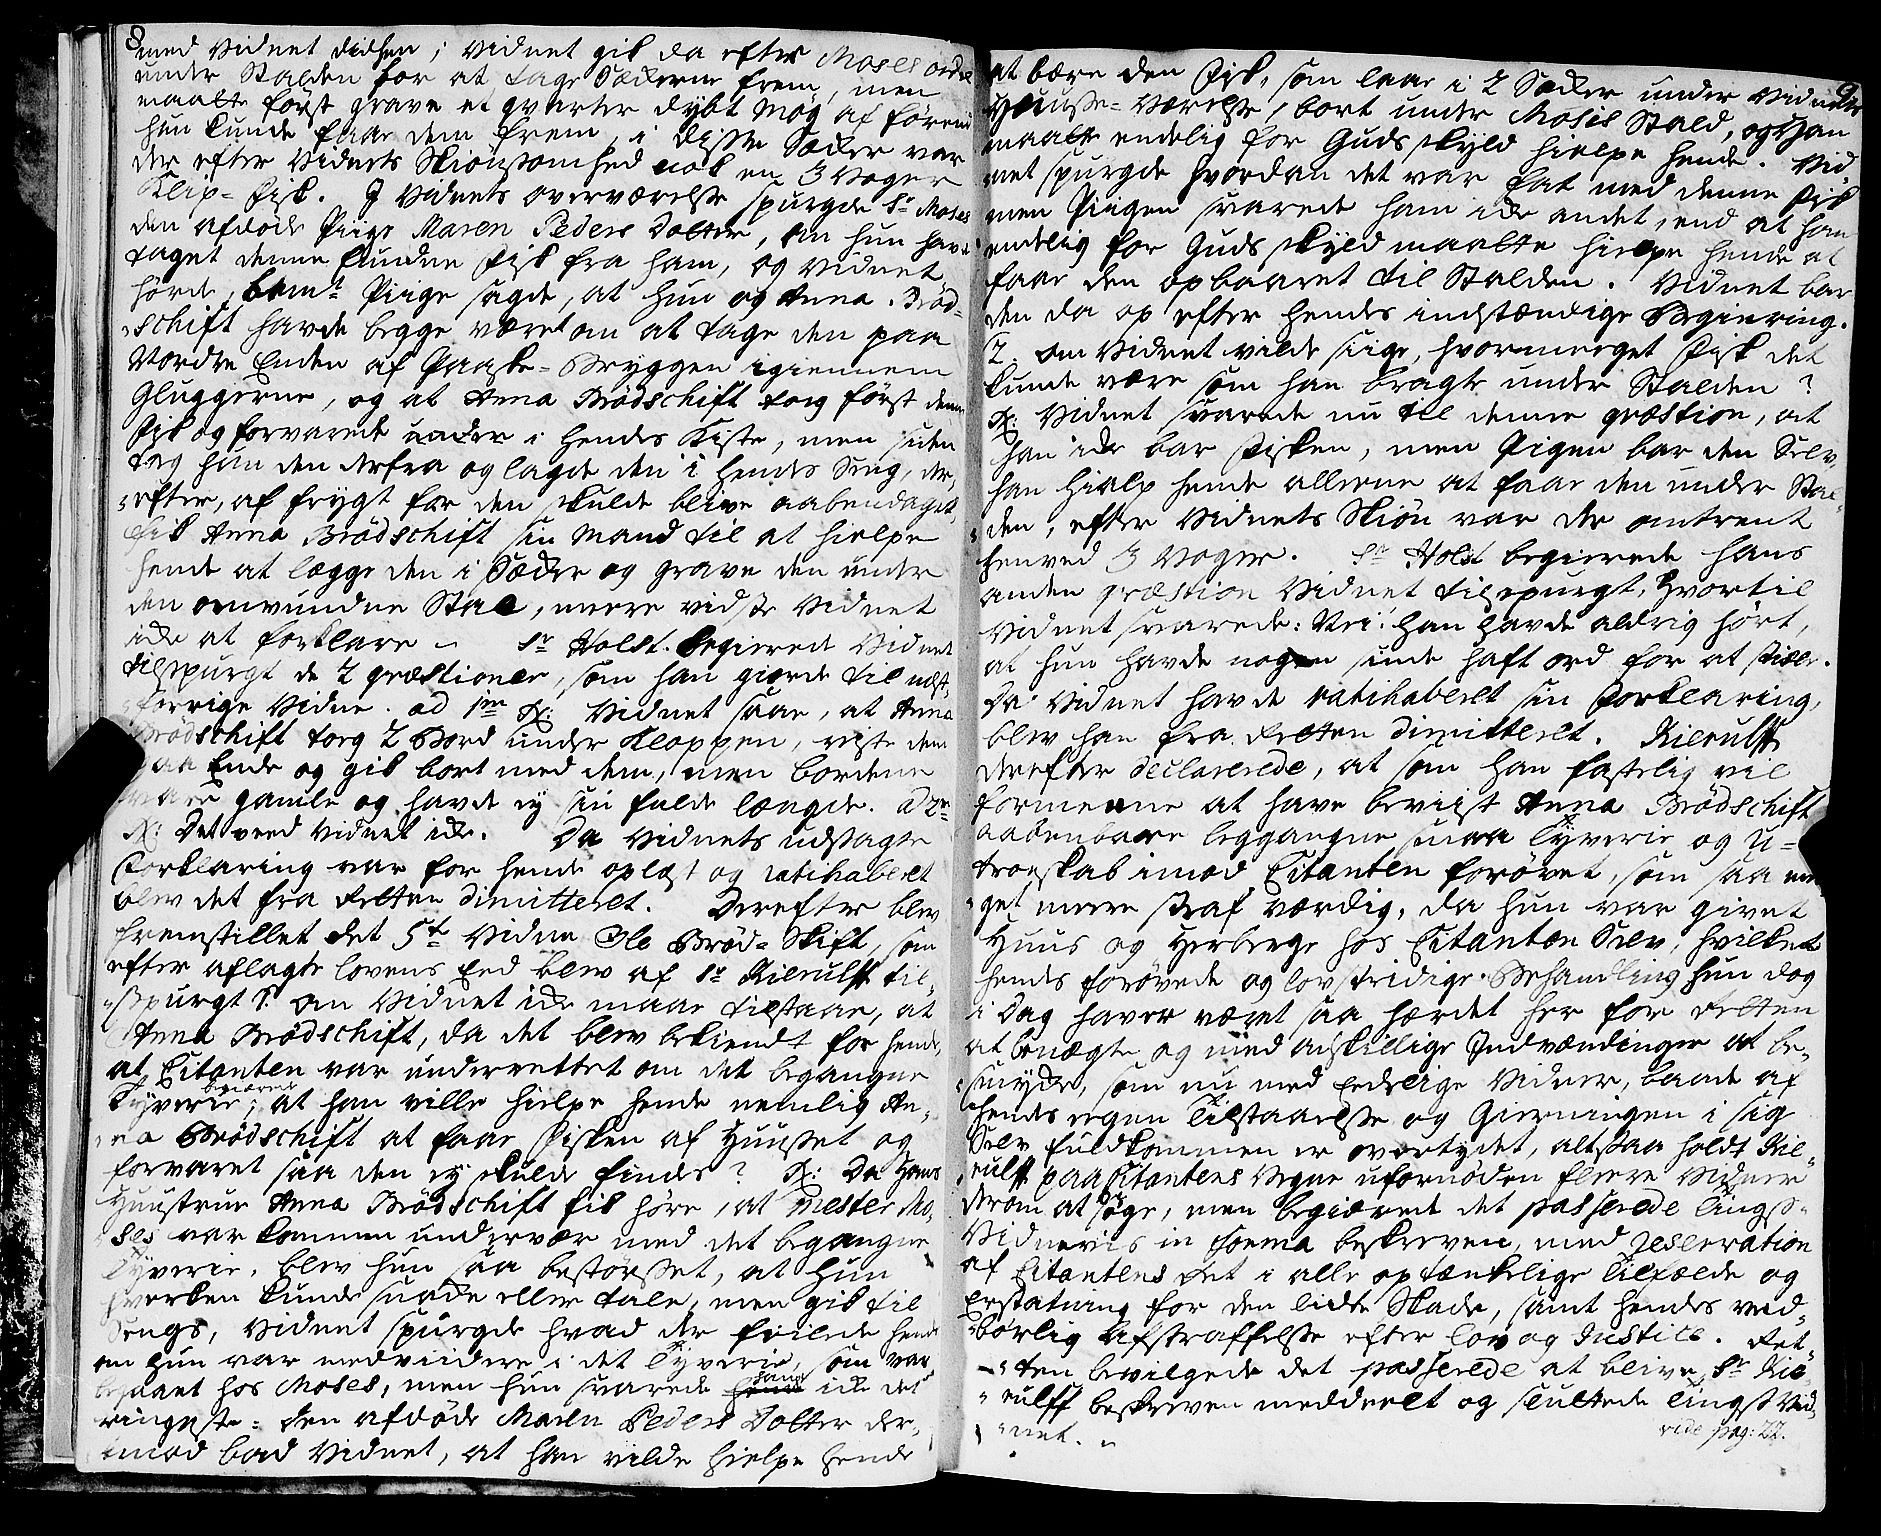 8
med Vidnet didhen; Vidnet gik da efter Moses ordre
under Stalden for at tage Sækkerne frem, men
maatte først grave et qvarter dybt Møg af førend
hun kunde faae dem frem, i disse Sækker var
der efter Vidnets Skiønsomhed nok en 3 Voger
Klip-Fisk. I Vidnets overværelse spurgde Sr Moses
den afdøde Piige Maren Peders Dotter, om hun havde
taget denne fundne Fisk fra ham, og Vidnet
hørde, bemte Piige sagde, at hun og Anna Brød-
schift havde begge været om at tage den paa
Nordre Enden af Paaske-Bryggen igiennem
Gluggerne, og at Anna Brødschift tog først denne
Fisk og forvarede under i hendes Kiste, men siden
tog hun den derfra og lagde den i hendes Seng, der-
efter, af frygt for den skulde blive aabendaget,
fik Anna Brødschift sin Mand til at hielpe
hende at lægge den i Sække og grave den under
den omvundne Stal, meere vidste Vidnet
ikke at forklare. Sr Holst begierede Vidnet
tilspurgt de 2 qvæstioner, som han giorde til næst
forrige Vidne. ad 1mm Rx: Vidnet saae, at Anna
Brødschift tog 2 Bord under Kloppen, reiste dem
paa Ende og gik bort med dem, men bordene
vare gamle og havde ey sin fulde længde. ad 2m
Rx: Det veed Vidnet ikke. Da Vidnets udsagte
Forklaring var for hende oplæst og ratihaberet
blev det fra Retten dimitteret. Derefter blev
fremstillet det 5te Vidne Ole Brød-Skift, som
efter aflagte lovens Eed blev af Sr Kierulff til-
spurgt 1. om Vidnet ikke maae tilstaae, at
Anna Brødschift, da det blev bekiendt for hende,
at Citanten var underrettet om det begangne
Tyverie, begiærede at han ville hielpe hende nemlig An-
na Brødschift at faae Fisken af Huuset og
forvaret saa den ey skulde findes? Rx: Da Hans
Huustrue Anna Brødschift fik høre, at Mester Mo-
ses var kommen undervær med det begangne
Tyverie, blev hun saa bestørtset, at hun
hverken kunde snakke eller tale, men gik til
Sengs, Vidnet spurgde hvad der feilede hende
om hun var medviidere i det Tyverie, som var
begaaet hos Moses, men hun svarede ham ikke det
ringeste: den afdøde Maren Peders Dotter der-
imod bad Vidnet, at han vilde hielpe hende
9.
at bære den Fisk, som laae i 2 Sækker under Vidnets
Huuse-Værelse, bort under Moses Stald, og Han
maatte endelig for Guds skyld hielpe hende. Vid-
net spurgde hvordan det var fat med denne Fisk
men Piigen svarede ham ikke andet, end at han
endelig for Guds skyld maatte hielpe hende at
faae den opbaaret til Stalden. Vidnet bar
den da op efter hendes indstændige Begiering.
2. om Vidnet vilde siige, hvormeeget Fisk det
kunde være som han bragte under Stalden?
Rx: Vidnet svarede nu til denne qvæstion, at
han ikke bar Fisken, men Pigen bar den Selv,
han hialp hende alleene at faae den under Stal-
den, efter Vidnets Skiøn var der omtrent
henved 3 Voger. Sr Holst begierede hans
anden qvæstion Vidnet tilspurgt, hvortil
Vidnet svarede: Nei! han havde aldrig hørt,
at hun havde nogen sinde haft ord for at stiele.
Da Vidnet havde ratihaberet sin Forklaring,
blev han fra Retten dimitteret. Kierulff
derefter declarerede, at som han fastelig vil
formeene at have beviist Anna Brødschift
aabenbare beggangne smaa Tyverie og U-
troeskab imod Citanten forøvet, som saa me-
get meere straf værdig, da hun var givet
Huus og Herberge hos Citanten Selv, hvilket
hendes forøvede og lovstridige Behandling hun dog
i Dag haver været saa hærdet her for Retten
at benægte og med adskillige Indvændinger at be-
smykke, som nu med Eedelige Vidner, baade af
hendes egen Tilstaaelse og Gierningen i sig
Selv fuldkommen er overtydet, altsaa holdt Kie-
rulff paa Citantens Vegne ufornøden fleere Vidner
derom at føre, men begiærede det passerede Tings-
Vidneviis in forma beskreven, med reservation
af Citantens Ret i alle optænkelige Tilfælde og
Erstatning for den lidte Skade, samt hendes ved-
børlig afstraffelse efter lov og Justice. Ret-
ten bevilgede det passerede at blive Sr Kie-
rulff beskreven meddeelt og sluttede Tings Vid-
net.
vide pag: 22.